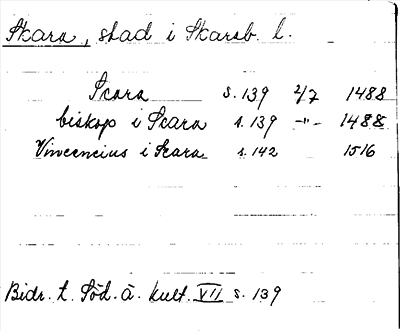 Skara, stad i Skarab. l.
Scara s. 139 2/7 1488
biskop i Scara s. 139 -"- 1488
Vincencius i Scara s. 142 1516
Bidr. t. Söd. ä. kult. VII s. 139